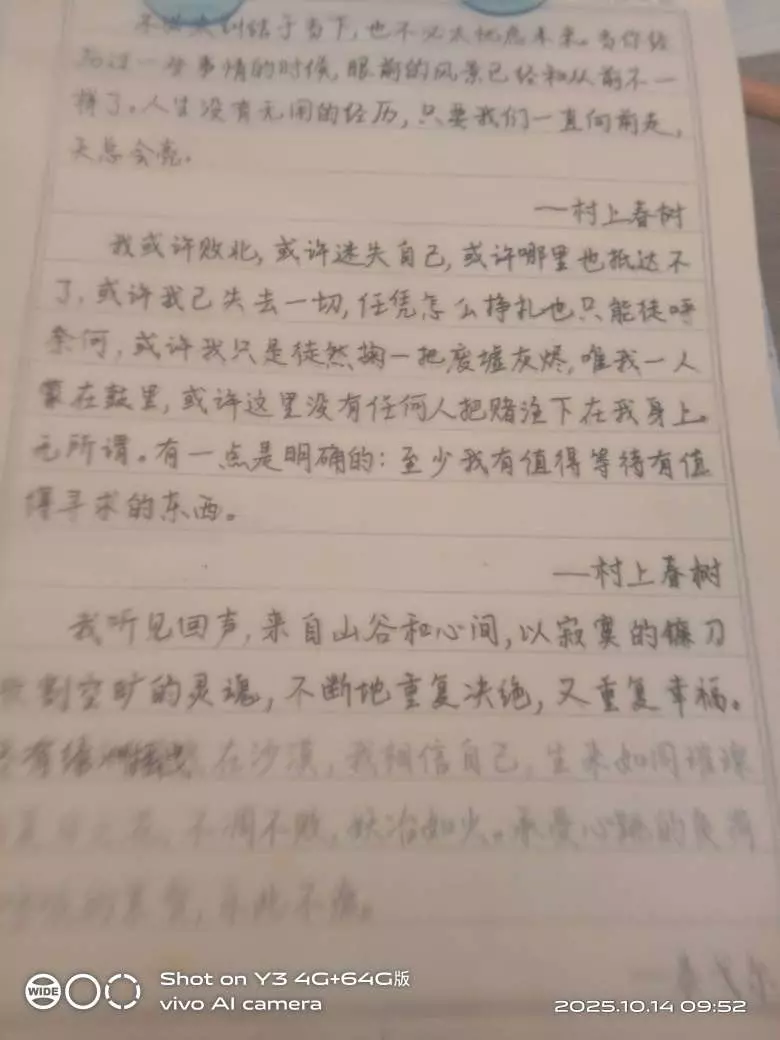 不必太纠结于当下，也不必太忧虑未来。当你经
历过一些事情的时候，眼前的风景已经和从前不一
样了。人生没有无用的经历，只要我们一直向前走，
天总会亮。
—村上春树
我或许败北，或许迷失自己，或许哪里也抵达不
了，或许我已失去一切，任凭怎么挣扎也只能徒呼
奈何，或许我只是徒然掬一把废墟灰烬，唯我一人
蒙在鼓里，或许这里没有任何人把赌注下在我身上。
无所谓。有一点是明确的：至少我有值得等待有值
得寻求的东西。
—村上春树
我听见回声，来自山谷和心间，以寂寞的镰刀
收割空旷的灵魂，不断地重复决绝，又重复幸福。
有绿洲摇曳在沙漠，我相信自己，生来如同璀璨
不凋不败，妖冶如火。承受心跳的负荷
乐此不疲。
泰戈尔
WIDE
Shot on Y3 4G+64G版
vivo AI camera
2025.10.14 09:52